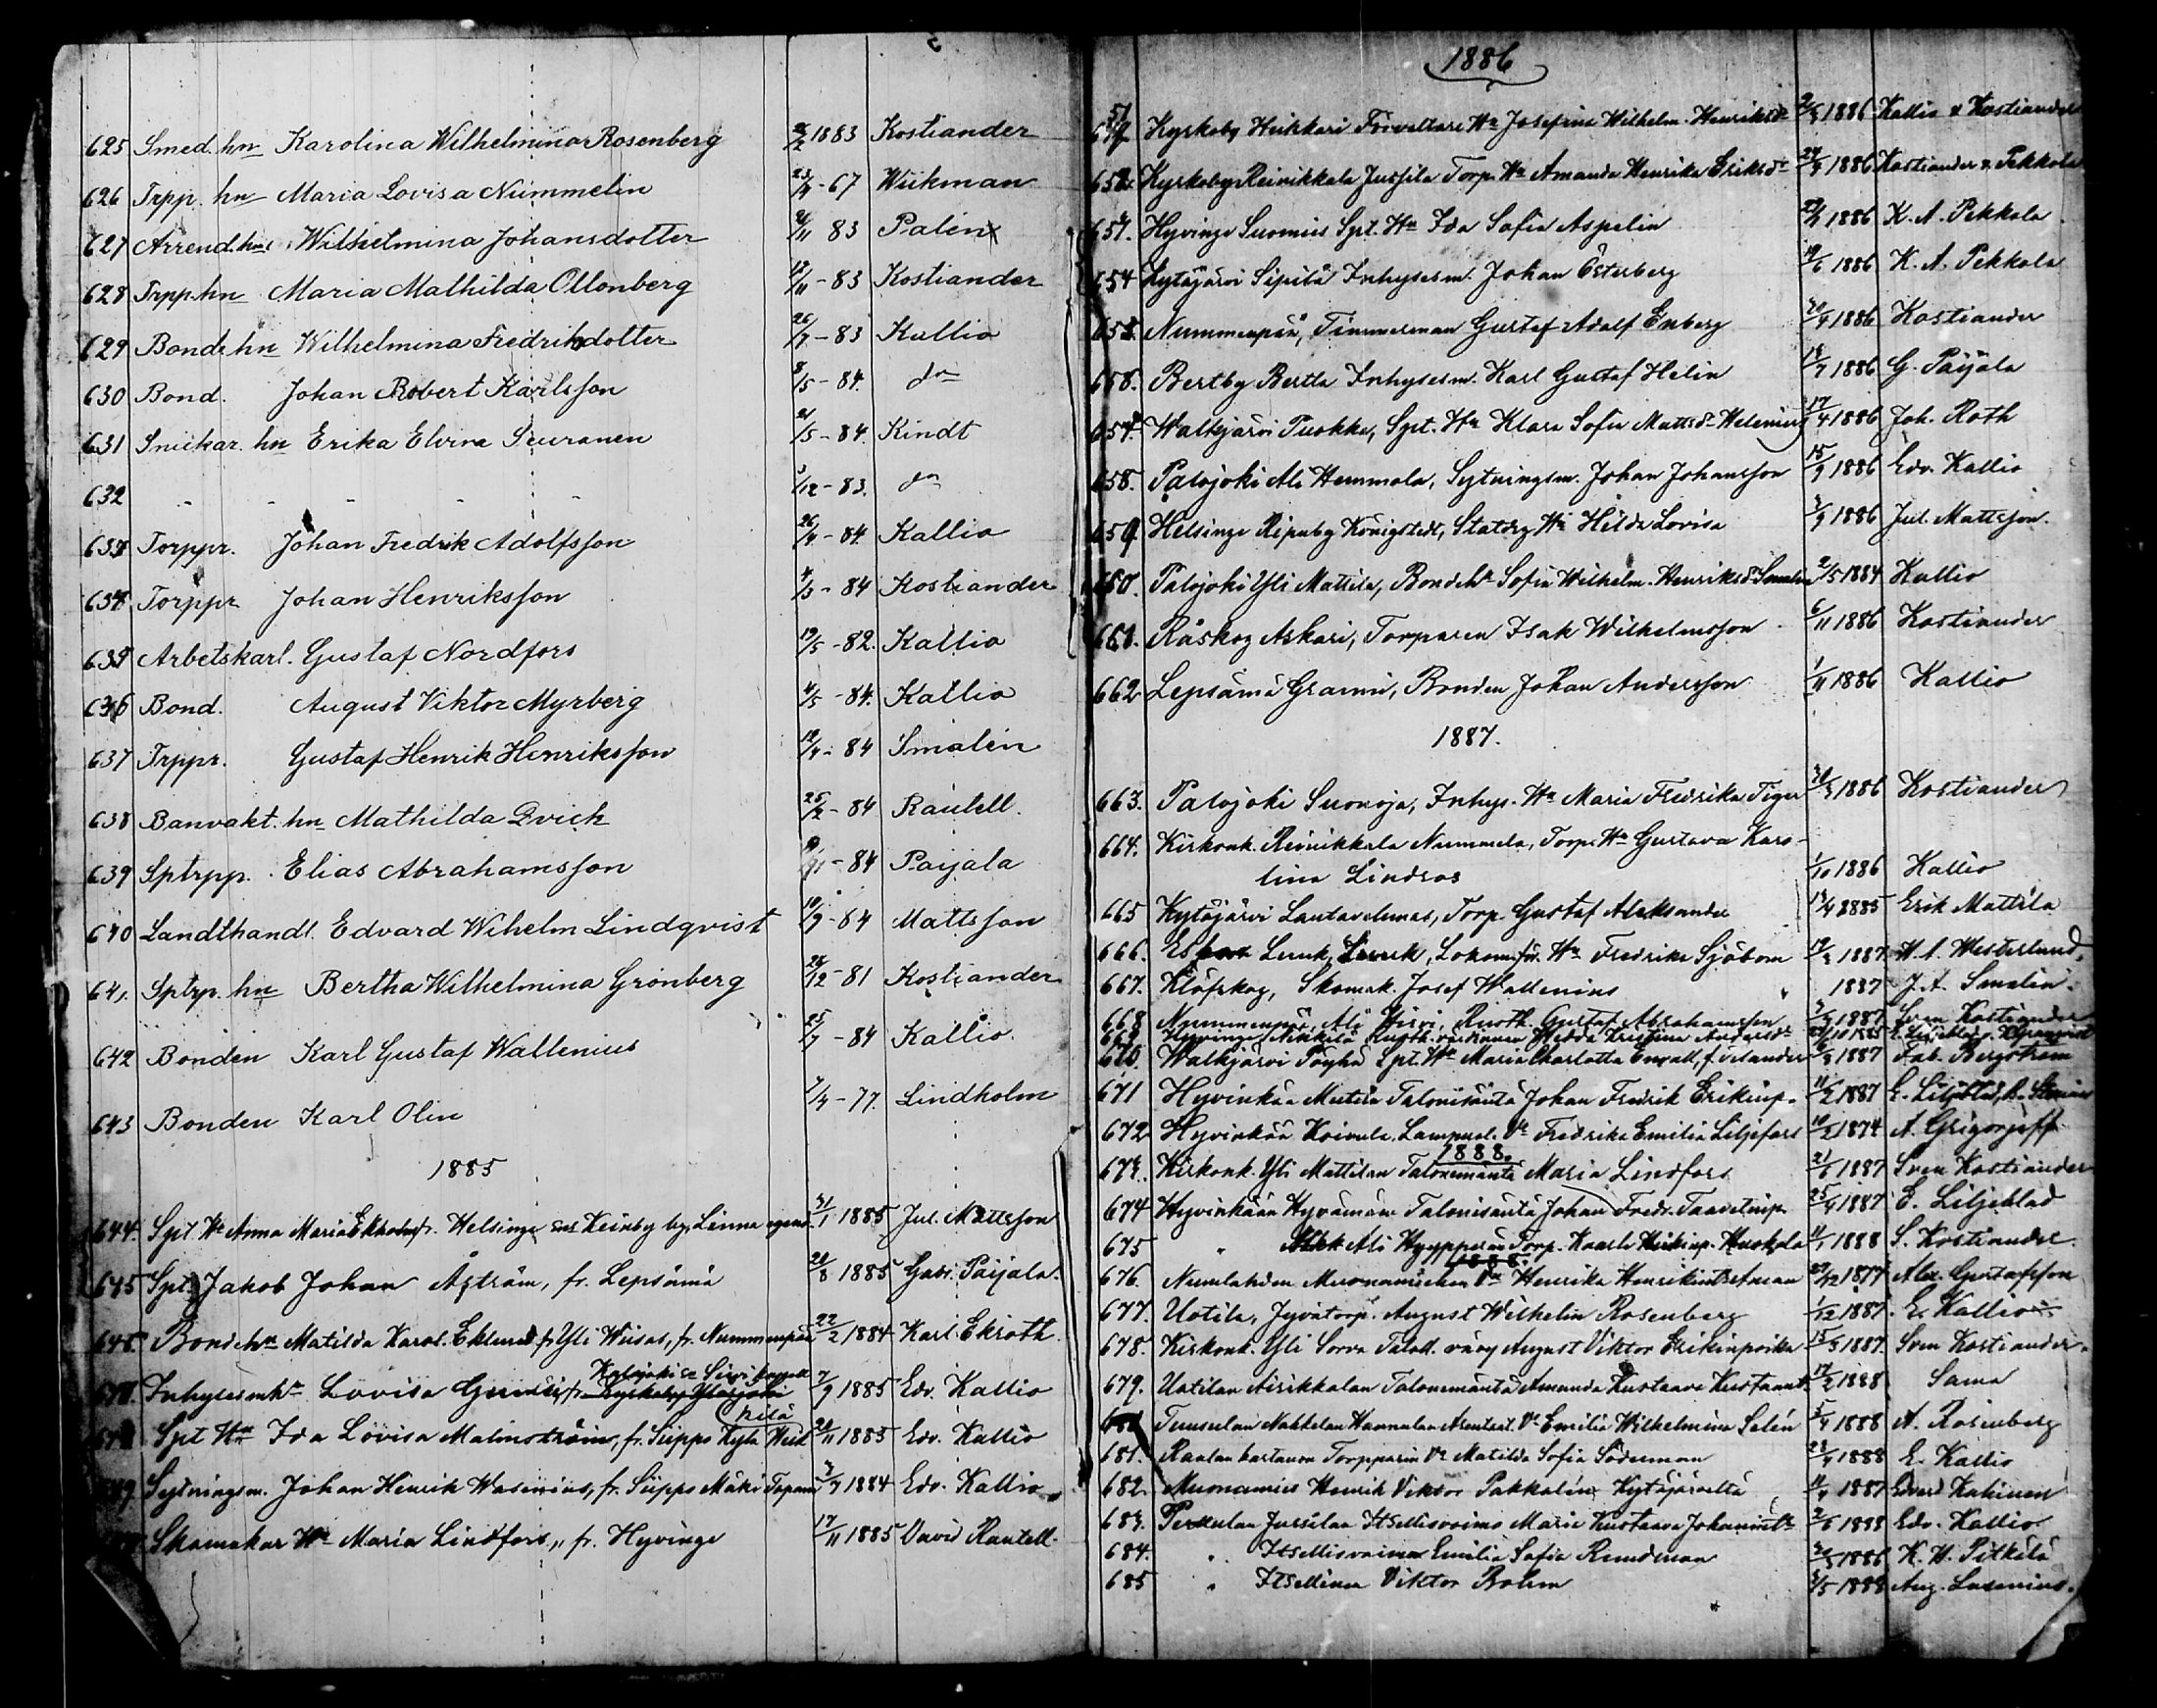 625 Smed. hn Karolina Wilhelmina Rosenberg 2/2 1883 Kostiander
626 Trpp. hn Maria Lovisa Nummelin 23/4 - 67 Wiikman
627 Arrend. hn Wilhelmina Johansdotter /11 83 Palen
628 Trpp. hn Maria Mathilda Ollonberg 17/11 - 83 Kostiander
629 Bonde hn Wilhelmina Fredriksdotter 26/7 - 83 Kallio
630 Bond. Johan Robert Karlsson 8/5 - 84. do
631 Snickar. hn Erika Elvira Seuranen 21/5 - 84. Kindt
632 " " " " 1/12 - 83. do
633 Torppr. Johan Fredrik Adolfsson 26/4 - 84. Kallio
634 Torppr Johan Henriksson 4/3 - 84 Kostiander
635 Arbetskarl. Gustaf Nordfors 19/5 - 82. Kallio
636 Bond. August Viktor Myrberg 4/5 - 84. Kallio
637 Trppr. Gustaf Henrik Henriksson 12/4 - 84 Smalén
638 Banvakt. hn Mathilda Qvick 25/2 - 84 Rautell.
639 Sptrpp. Elias Abrahamsson - 84 Paijala
640 Landthandl. Edvard Wihelm Lindqvist 10/9 - 84 Mattsson
641. Sptrp. hn Bertha Wilhelmina Grönberg 28/12 - 81 Kostiander
642 Bonden Karl Gustaf Wallenius 25/7 - 84 Kallio.
643 Bonden Karl Olin 7/4 - 77. Lindholm
1885
644. Spt Hn Anna Maria Ekholm fr. Helsinge Keinby by, Linna egend. 3/1 1885 Jul. Mattsson
645 Spt. Jakob Johan Åström, fr. Lepsämä 28/8 1885 Gabr. Paijala.
646. Bonde hn Matilda Karol. Eklund fr Yli Wiisas, fr. Nummenpää 22/2 1884 Karl Ekroth.
Inhyses mhn Lovisa fr. Kyrkoby Ylösjoki 7/9 1885 Edv. Kallio
Spt Hn Ida Lovisa Malmström, fr. Seppo Kylä 28/11 1885 Edv. Kallio
Sytningsm. Johan Henrik Wasenius, fr. Seppo Mäki Tapani 3/7 1884 Edv. Kallio
Skomakar Hn Maria Lindfors, fr. Hyvinge 17/11 1885 David Rautell.
1886
Kyrkoby Hukkari Förvaltare Hn Josefina Wilhelm. Henriksdr 2/3 1886 Kallio & Kostiander
652. Kyrkoby Reinikkala Jussila Torp. Hn Amanda Henrika Eriksdr 1886 Kostiander & Pekkola
Hyvinge Suomies Spt. Hn Ida Sofia Aspelin 1886 K. A. Pekkola
654 Kytäjärvi Sipilä Inhysesm. Johan Österberg 19/6 1886 K. A. Pekkola
655. Nummenpää, Timmerman Gustaf Adolf Enberg 1886 Kostiander
656. Bertby Bertla Inhysesm. Karl Gustaf Helin 18/7 1886 G. Päijäla
657. Walkjärvi Tuokko, Spt. Hn Klara Sofia Mattsdr Welenius 17/4 1886 Joh. Roth
658. Palojoki Ali Hemmola, Sytningsm. Johan Johansson 15/9 1886 Edv. Kallio
659. Helsinge Ripuby Königstedt, Statdrg Hn Hilda Lovisa 1886 Jul. Mattsson.
660. Palojoki Yli Mattila, Bondehn Sofia Wilhelm. Henriksdr Smalen 2/5 1884 Kallio
661. Råskog Askari, Torparen Isak Wilhelmsson 6/11 1886 Kostiander
662 Lepsämä Grannu, Bonden Johan Andersson 1/11 1886 Kallio
1887.
663. Palojoki Suonoja, Inhys. Hn Maria Fredrika Tiger 1886 Kostiander
664. Kirkonk. Reinikkala Nummela, Torp. Hn Gustava Karo-
lina Lindros 1/10 1886 Kallio
665 Kytäjärvi Lautavelumas, Torp. Gustaf Aleksander 1885 Erik Mattila
666. Lokom.för. Hn Fredrika Sjöbom 1887 A. Westerlund
667. Klöfskog, Skomak. Josef Wallenius 1887 J. A. Smalin.
668 Nummenpää, Ali Gustaf Abrahamsson 1887 Sven Kostiander
669 Hyvinge Hedda Kristina Andersdr
670. Walkjärvi Pöyhä Spt. Hn Maria Charlotta Envall, f. Velander 1887 Fab. Bergström
671 Hyvinkää Mutila Talonisäntä Johan Fredrik Erikinp. 1887 E. Liljeblad
672 Hyvinkää Koivula, Lampuol. Vo Fredrika Emilia Liljefors 10/2 1874 A. Grigorjeff
1888.
673. Kirkonk. Yli Mattilan Talonemäntä Maria Lindfors 21/6 1887 Sven Kostiander
674 Hyvinkään Hyvämäen Talonisäntä Johan Fredr. Taavetinp. 25/4 1887 E. Liljeblad
675 " Ali Hyyppärän Torp. Kaarle Heikinp. 11/1 1888 S. Kostiander.
676. Numlahden Muonamiehen Vo Henrika Henrikintr 27/12 1877 Alex. Gustafsson
677. Uotila, Jyvätorp. August Wilhelm Rosenberg 1/12 1887. E. Kallio
678. Kirkonk. Yli Sorva Taloll. vävy August Viktor Erikinpoika 15/3 1887. Sven Kostiander.
679. Uotilan Airikkalan Talonemäntä Amanda Kustaava Kustaantr 17/2 1888 Sama
Tuusulan Nakkelan Hannulan Vo Emilia Wilhelmina Selén 1888 A. Rosenberg
681. Raalan kartanon Torpparin Vo Matilda Sofia Söderman 28/4 1888 E. Kallio
682. Muonamies Henrik Viktor Pakkalén Kytäjärveltä 1887 Edvard Kahinen
683. Perttulan Jussilan Itsellisvaimo Maria Kustaava Johanintr 2/6 1888 Edv. Kallio
684. " Itsellisvaimo Emilia Sofia Rundman 1886 K. H. Pitkälä
685 " Itsellinen Viktor Bohm 3/5 1888 Aug. Lusenius.